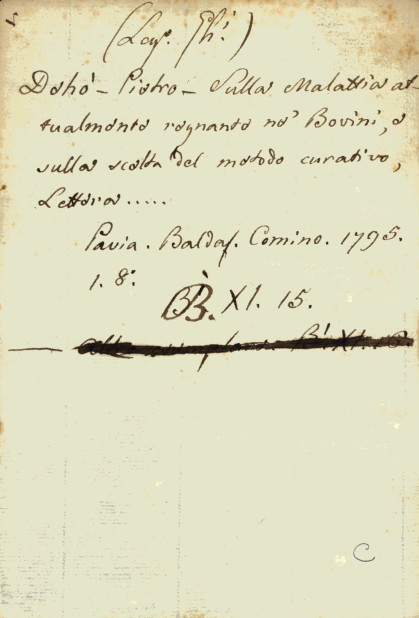 Dehò - Pietro - Sulla Malattia at-
tualmente regnante ne' Bovini, e
sulla scelta del metodo curativo,
Lettera.....
Pavia. Baldas. Comino. 1795.
1. 8.°
B. XI. 15.
C